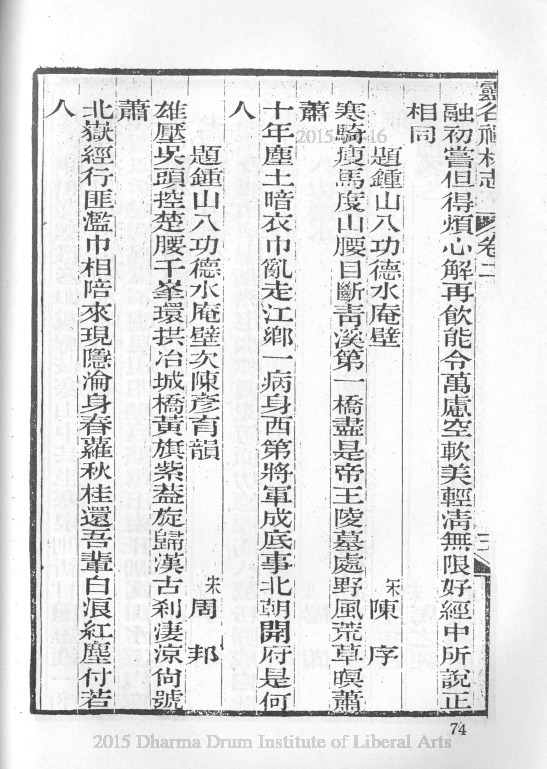 靈谷禪林志 卷二 三
融初嘗但得煩心解再飲能令萬慮空軟美輕清無限好經中所說正
相同
題鍾山八功德水庵壁
宋 陳 序
寒騎瘦馬度山腰目斷青溪第一橋盡是帝王陵墓處野風荒草暝蕭
蕭
十年塵土暗衣巾亂走江鄉一病身西第將軍成底事北朝開府是何
人
題鍾山八功德水庵壁次陳彥育韻
宋 周 邦
雄壓吳頭控楚腰千峯環拱冶城橋黃旗紫葢旋歸漢古刹淒涼尙號
蕭
北嶽經行匪濫巾相陪來現隱淪身春蘿秋桂還吾輩白浪紅塵付若
人
74
2015 Dharma Drum Institute of Liberal Arts